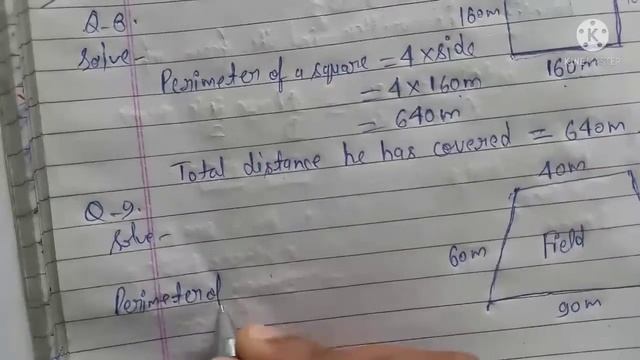 Q-8.
160m
Solve-
Perimeter of a square = 4 x side
160m
= 4 x 160m
= 640m
Total distance he has covered = 640m
40m
Q-9.
Solve-
60m
Field
Perimeter of
90m